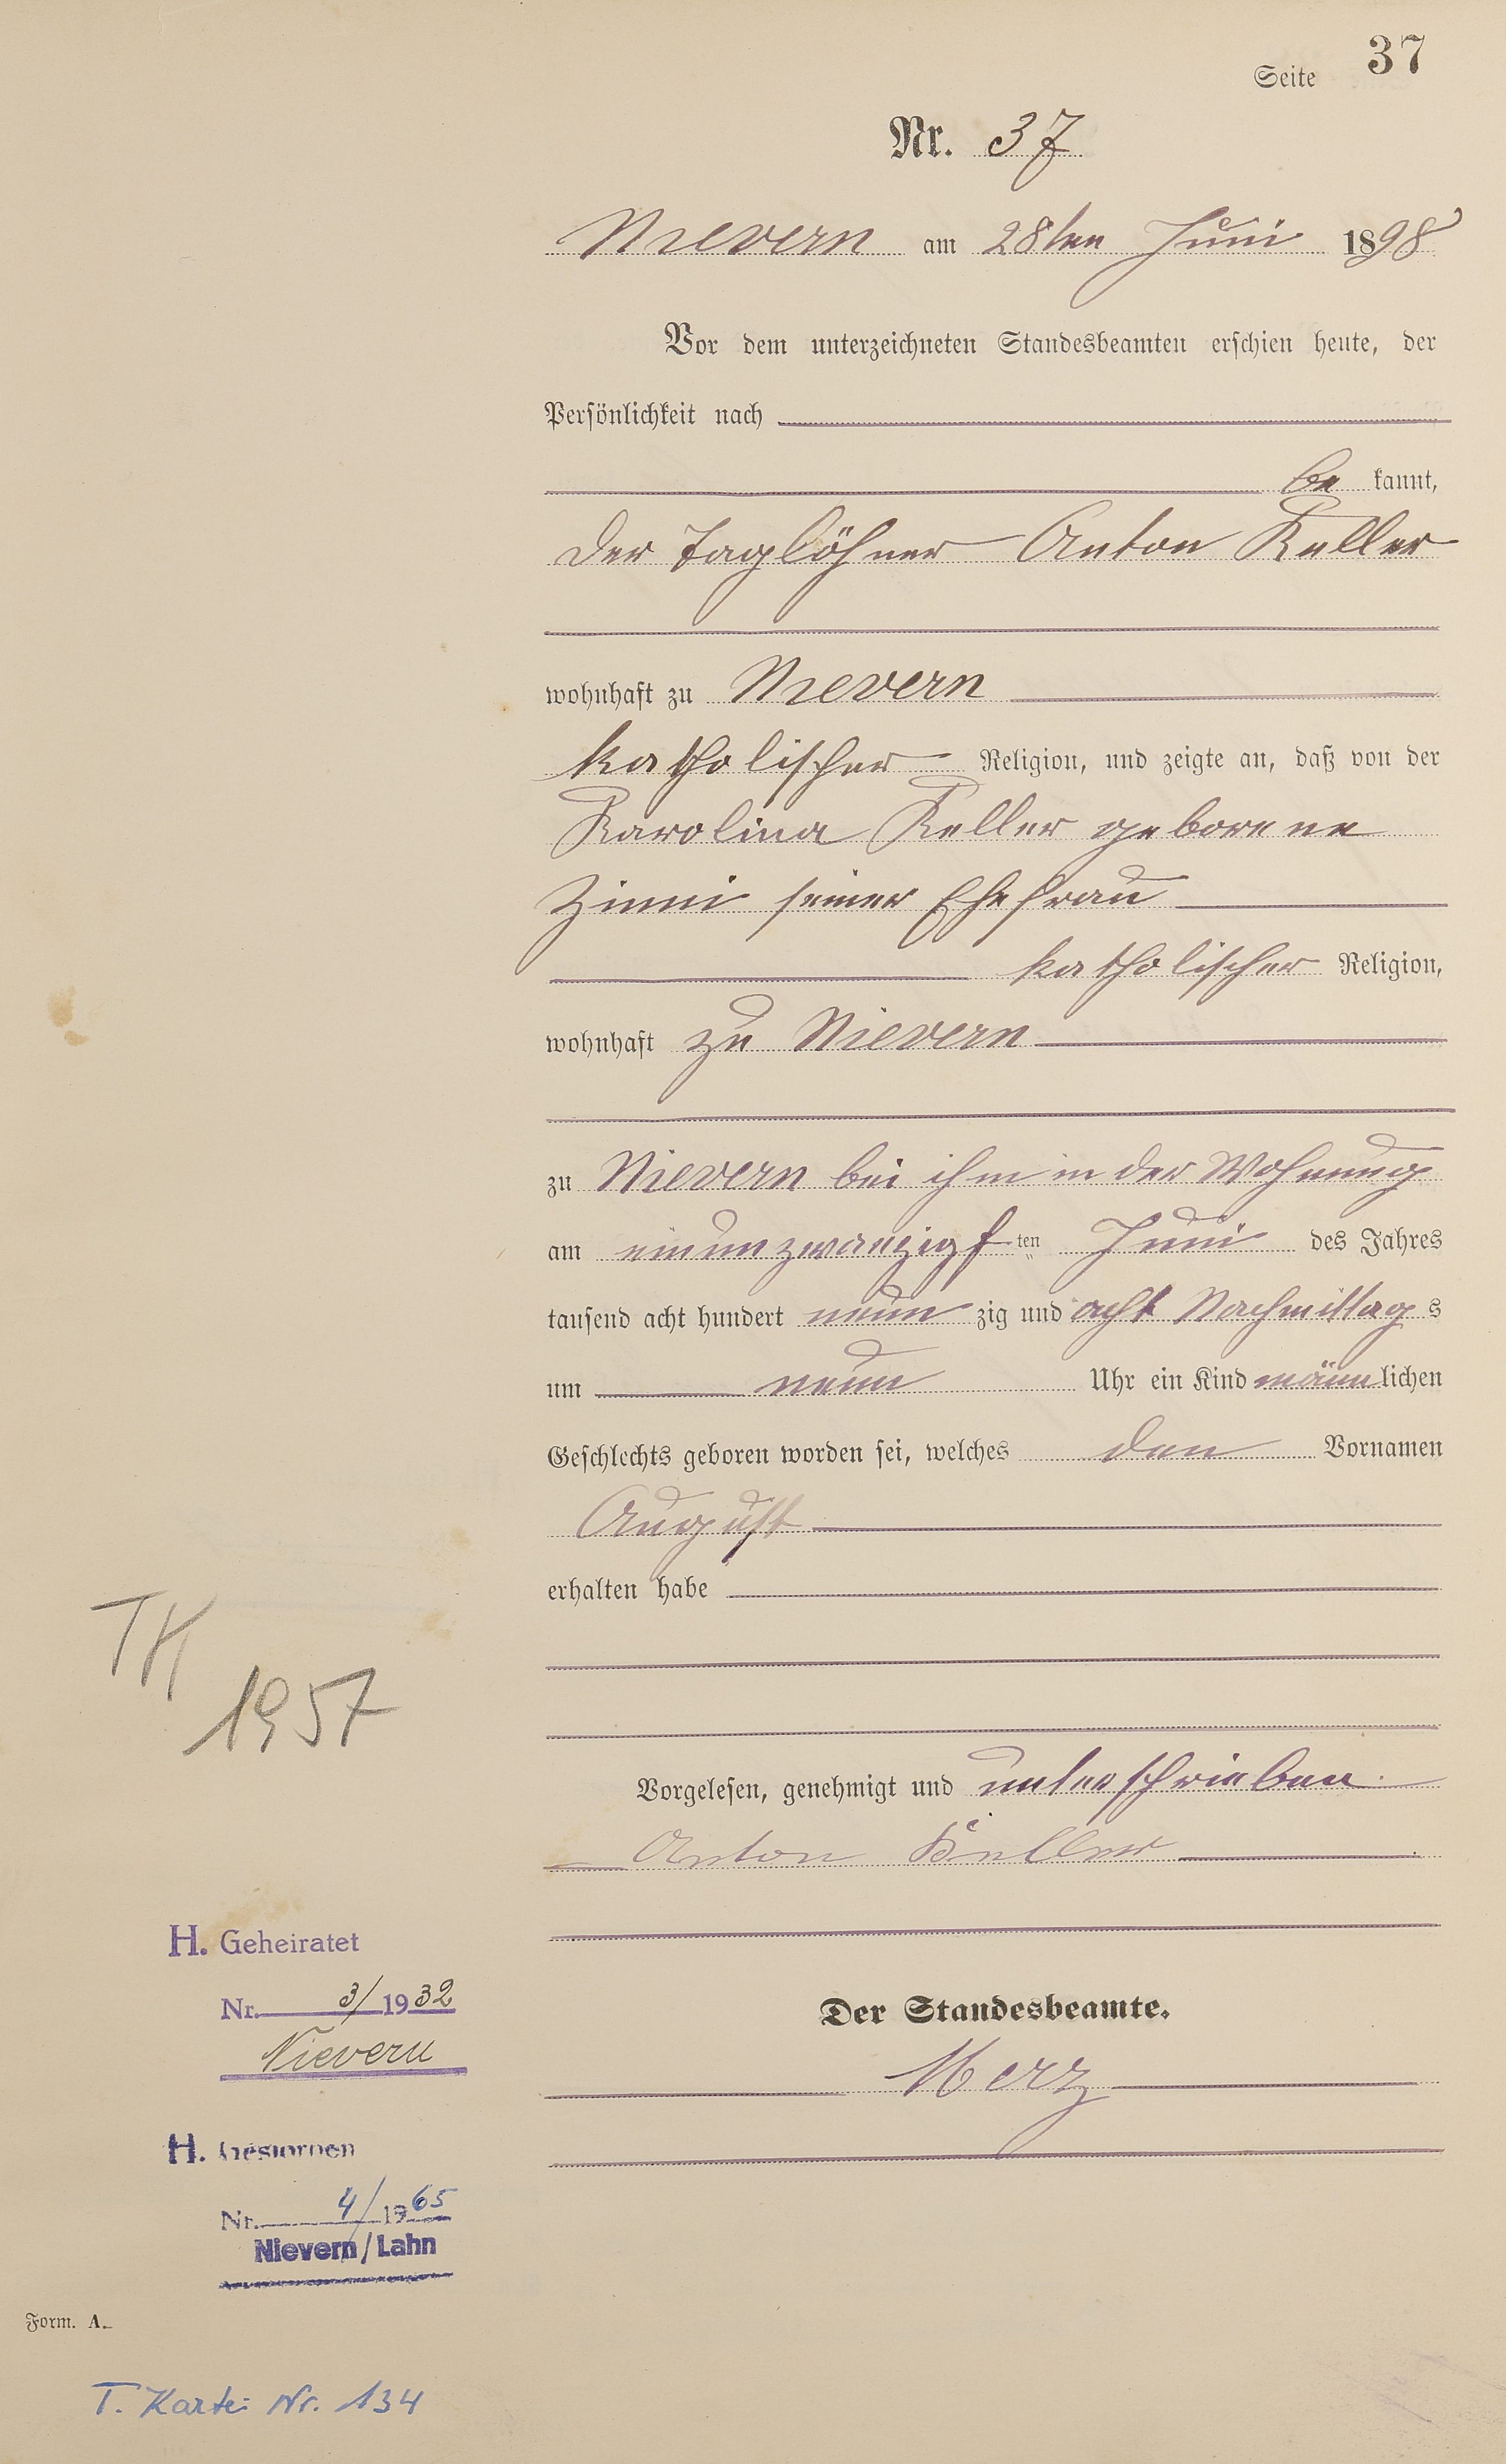 Seite 37
Nr. 37
Nievern am 28ten Juni 1898
Vor dem unterzeichneten Standesbeamten erschien heute, der
Persönlichkeit nach
be kannt,
der Taglöhner Anton Keller
wohnhaft zu Nievern
katholischer Religion, und zeigte an, daß von der
Karolina Keller geborene
Zimni seiner Ehefrau
katholischer Religion,
wohnhaft zu Nievern
zu Nievern bei ihm in der Wohnung
am einunzwanzigs ten Juni des Jahres
tausend acht hundert neun zig und acht Nachmittag s
um neun Uhr ein Kind männlichen
Geschlechts geboren worden sei, welches den Vornamen
August
erhalten habe
Vorgelesen, genehmigt und unterschrieben
Anton Keller
Der Standesbeamte.
Merz
TK
1957
H. Geheiratet
Nr. 3/1932
Nievern
H. Gestorben
Nr. 4/1965
Nievern/Lahn
Form. A.
T. Kartei Nr. 134